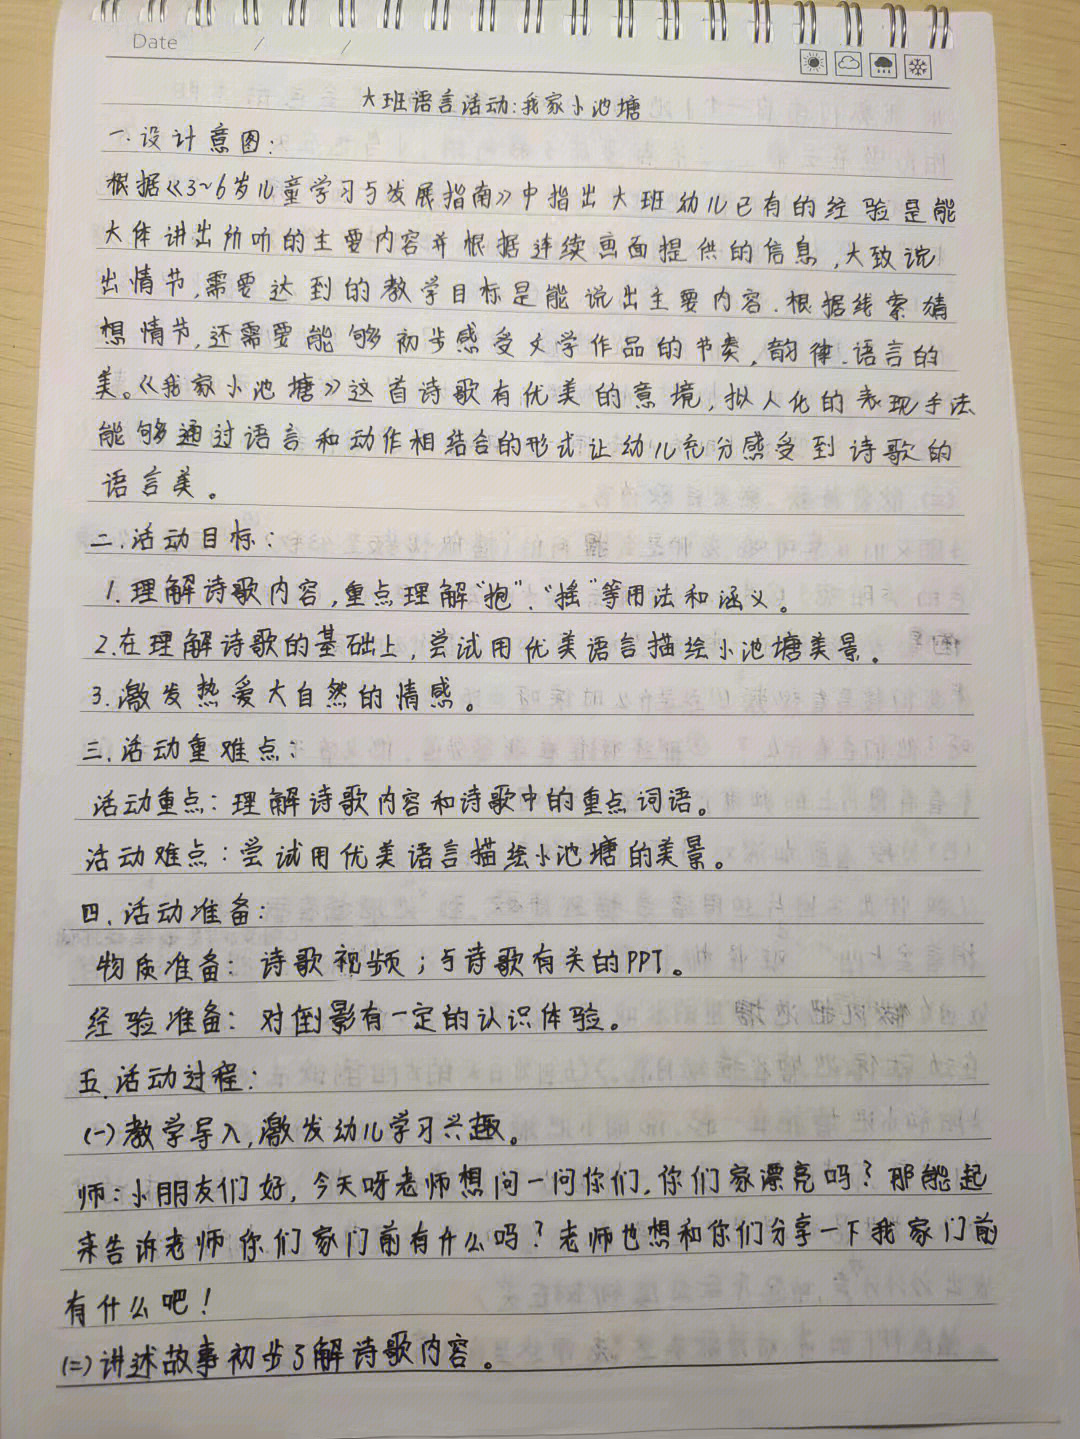 Date / /
大班语言活动:我家小池塘
一.设计意图:
根据《3~6岁儿童学习与发展指南》中指出大班幼儿已有的经验是能
大体讲出所听的主要内容并根据连续画面提供的信息,大致说
出情节,需要达到的教学目标是能说出主要内容.根据线索猜
想情节,还需要能够初步感受文学作品的节奏,韵律.语言的
美。《我家小池塘》这首诗歌有优美的意境,拟人化的表现手法
能够通过语言和动作相结合的形式让幼儿充分感受到诗歌的
语言美。
二.活动目标:
1.理解诗歌内容,重点理解“抱”、“摇”等用法和涵义。
2.在理解诗歌的基础上,尝试用优美语言描绘小池塘美景。
3.激发热爱大自然的情感。
三.活动重难点:
活动重点:理解诗歌内容和诗歌中的重点词语。
活动难点:尝试用优美语言描绘小池塘的美景。
四.活动准备:
物质准备:诗歌视频;与诗歌有关的PPT。
经验准备:对倒影有一定的认识体验。
五.活动过程:
(一)教学导入,激发幼儿学习兴趣。
师:小朋友们好,今天呀老师想问一问你们,你们家漂亮吗?那能起
来告诉老师你们家门前有什么吗?老师也想和你们分享一下我家门前
有什么吧!
(二)讲述故事初步了解诗歌内容。